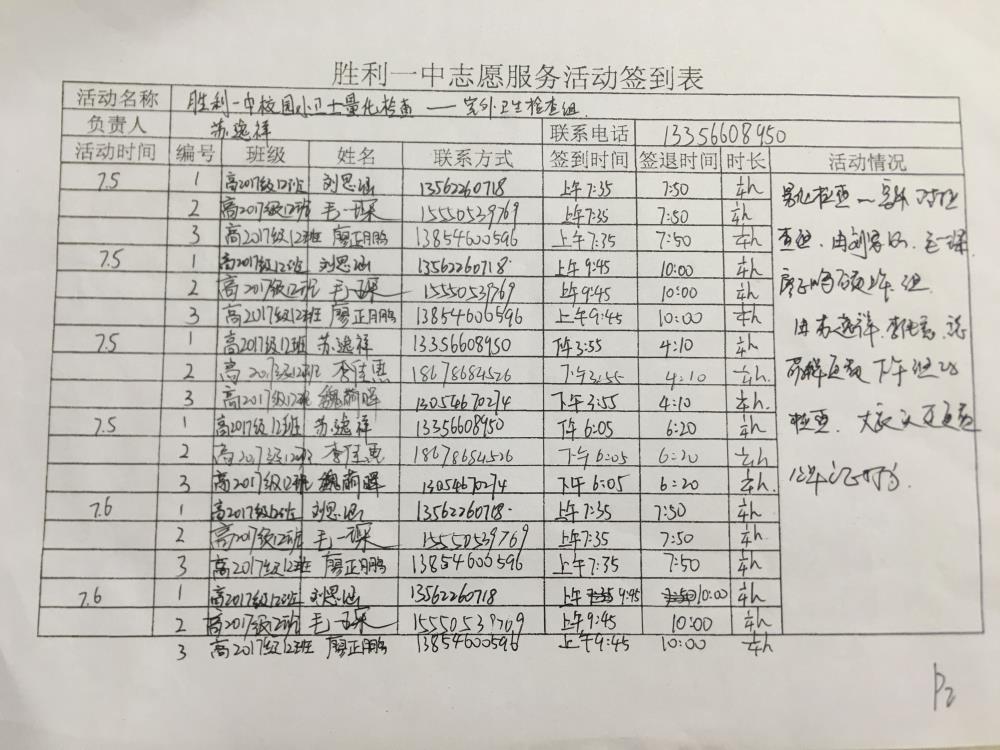 胜利一中志愿服务活动签到表
活动名称 胜利一中校园小卫士量化检查——室外卫生检查组
负责人 苏逸祥 联系电话 13356608950
活动时间 编号 班级 姓名 联系方式 签到时间 签退时间 时长 活动情况
7.5 1 高2017级12班 刘思涵 13562260718 上午7:35 7:50 1/4h
2 高2017级12班 毛一琛 15550539769 上午7:35 7:50 1/4h
3 高2017级12班 廖正鹏 13854600596 上午7:35 7:50 1/4h
7.5 1 高2017级12班 刘思涵 13562260718 上午9:45 10:00 1/4h
2 高2017级12班 毛一琛 15550539769 上午9:45 10:00 1/4h
3 高2017级12班 廖正鹏 13854600596 上午9:45 10:00 1/4h
7.5 1 高2017级12班 苏逸祥 13356608950 下午3:55 4:10 1/4h
2 高2017级12班 李佳惠 18678684526 下午3:55 4:10 1/4h.
3 高2017级12班 魏萌晖 13054670274 下午3:55 4:10 1/4h.
7.5 1 高2017级12班 苏逸祥 13356608950 下午6:05 6:20 1/4h
2 高2017级12班 李佳惠 18678684526 下午6:05 6:20 1/4h
3 高2017级12班 魏萌晖 13054670274 下午6:05 6:20 1/4h.
7.6 1 高2017级12班 刘思涵 13562260718 上午7:35 7:50 1/4h
2 高2017级12班 毛一琛 15550539769 上午7:35 7:50 1/4h
3 高2017级12班 廖正鹏 13854600596 上午7:35 7:50 1/4h
7.6 1 高2017级12班 刘思涵 13562260718 上午 9:45 10:00 1/4h
2 高2017级12班 毛一琛 15550539769 上午9:45 10:00 1/4h
3 高2017级12班 廖正鹏 13854600596 上午9:45 10:00 1/4h
P2